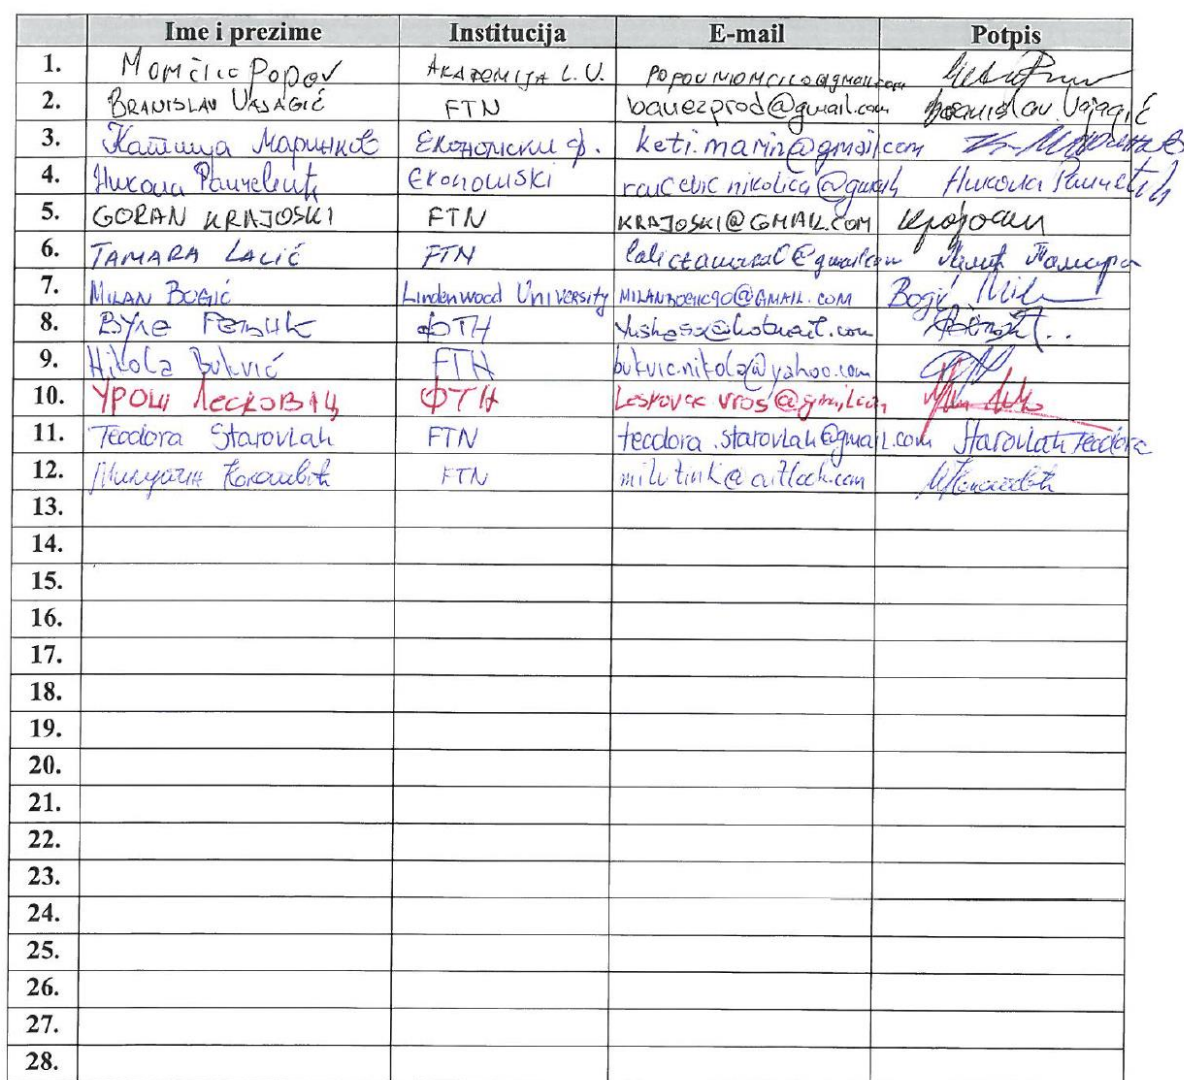 Ime i prezime Institucija E-mail Potpis
1. Momčilo Popov AKADEMIJA L. U. popovmomcilo@gmail.com
2. BRANISLAV VAJAGIĆ FTN bauezprod@gmail.com Branislav Vajagić
3. Катица Маринков Економски ф. keti.marin@gmail.com
4. Никола Раичевић Ekonomski raicevic nikolica@gmail Никола Раичевић
5. GORAN KRAJOSKI FTN KRAJOSKI@GMAIL.COM Крајоски
6. TAMARA LALIĆ FTN lalictamara1@gmail.com Лалић Тамара
7. MILAN BOGIĆ Lindenwood University MILANBOGIC90@GMAIL.COM Bogić Mil
8. ФТН
9. Nikola Bukvić FTN bukvic.nikola@yahoo.com
10. УРОШ ЛЕСКОВАЦ ФТН Leskovac uros@gmail.com
11. Teodora Starovlah FTN teodora.starovlah@gmail.com Starovlah Teodora
12. Милутин FTN milutink@outlook.com
13.
14.
15.
16.
17.
18.
19.
20.
21.
22.
23.
24.
25.
26.
27.
28.